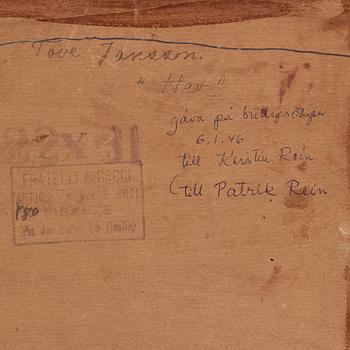 Tove Jansson.
"Hav"
gåva på bröllopsdagen
6.1.46
till Kerstin Rein
(till Patrik Rein
FRATELLI RIGACCI
Via dei Servi